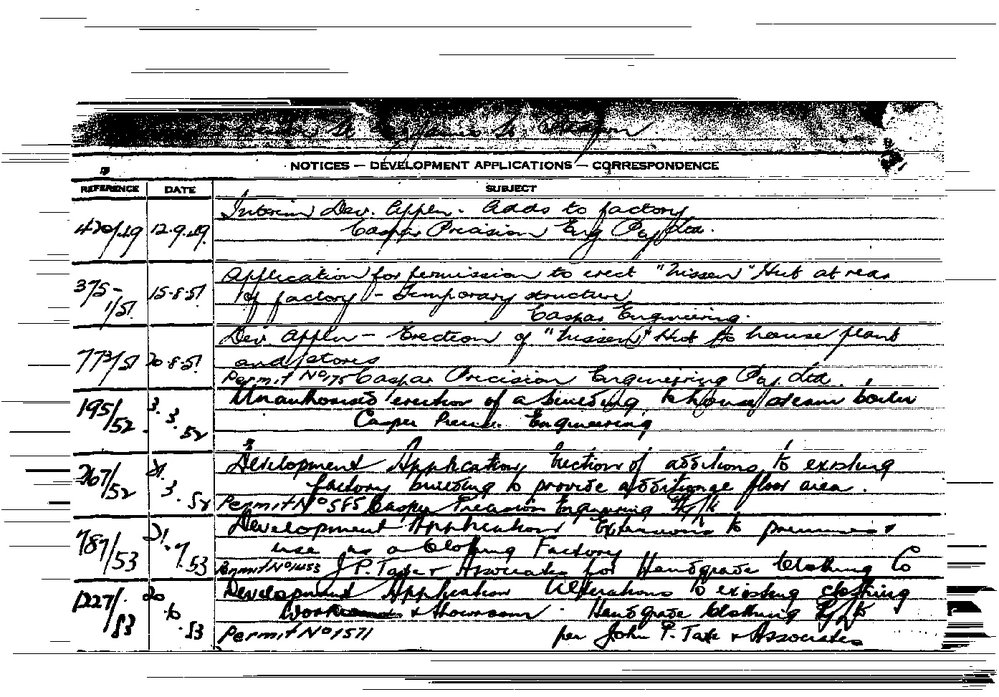 NOTICES — DEVELOPMENT APPLICATIONS — CORRESPONDENCE
REFERENCE DATE SUBJECT
Interim Dev. Appln. Adds to factory
420/49 12.9.49. Caspar Precision Eng Pty Ltd.
Application for permission to erect "Nissen" Hut at rear
375-1/51 15.8.51 of factory - Temporary structure
Caspar Engineering.
Dev. Appln - Erection of "Nissen" Hut to house plant
773/51 20.8.51 and stores
Permit No 75 Caspar Precision Engineering Pty. Ltd.
195/52 3.3.52 Unauthorised erection of a building to house steam boiler
Casper Engineering
Development Application Erection of additions to existing
267/52 3.52 factory building to provide additional floor area.
Permit No 585 Casper Precision Engineering P/L
Development Application Extensions to premises &
787/53 31.7.53 use as a Clothing Factory
Permit No 1453 J.P. Tate & Associates for Hendgrade Clothing Co
Development Application Alterations to existing clothing
1227/53 & Showroom - Clothing P/L
Permit No 1571 per John P. Tate & Associates